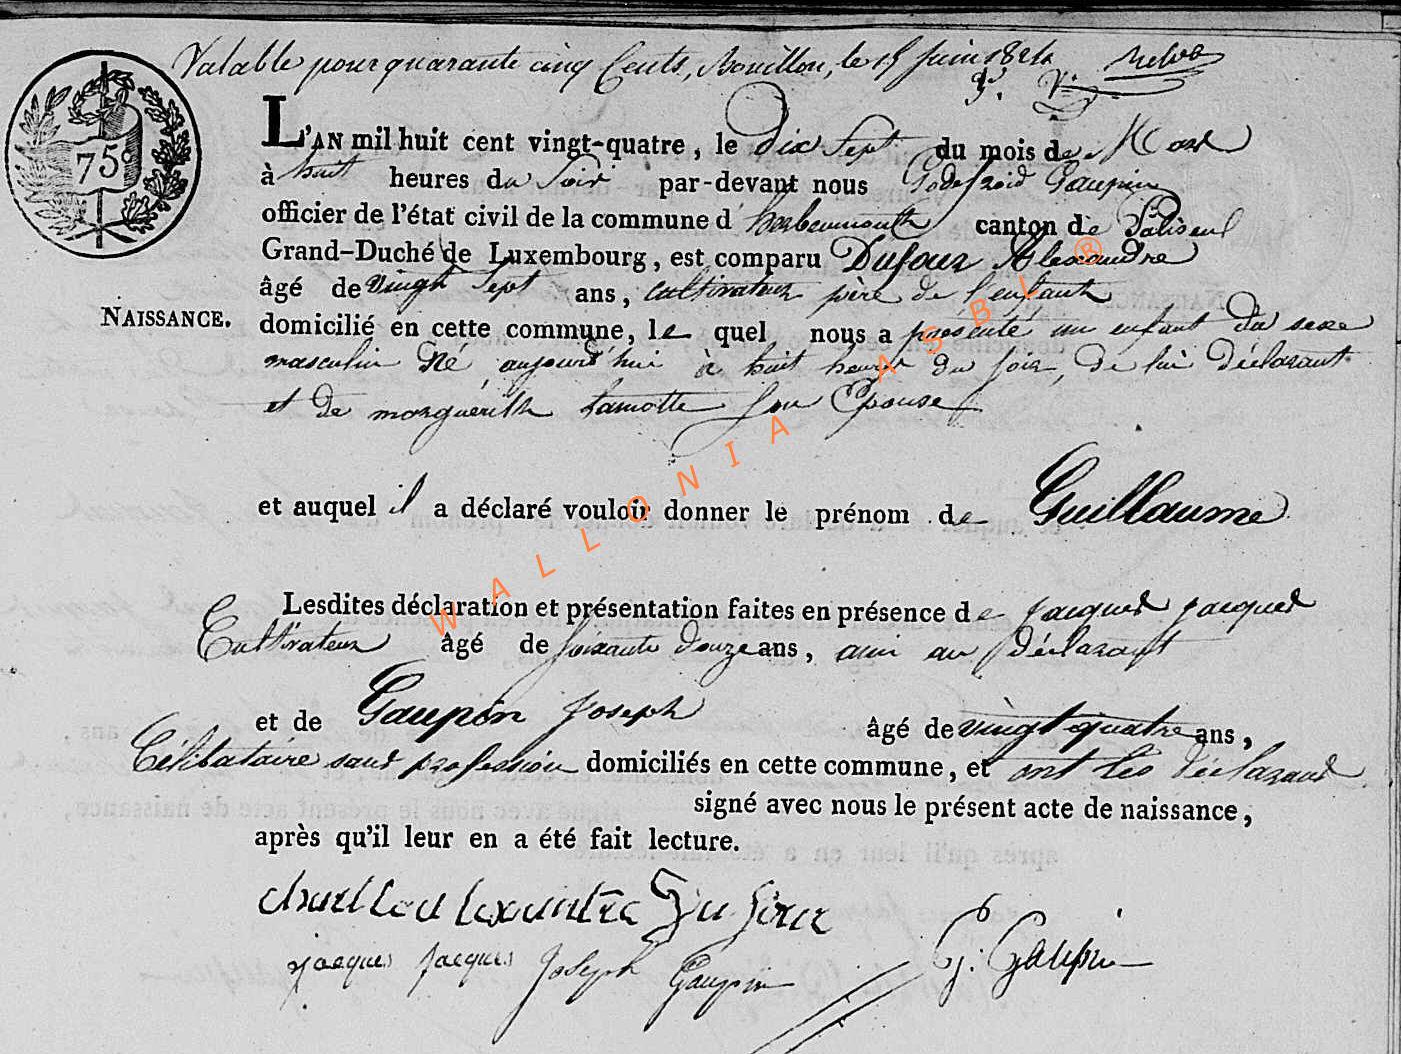 Valable pour quarante cinq Cents, Bouillon, le 15 juin 1824
75c
L'AN mil huit cent vingt-quatre, le Dix Sept du mois de Mars
à huit heures du Soir par-devant nous Godefroid Gaupin
officier de l'état civil de la commune d' herbeumont canton de Paliseul
Grand-Duché de Luxembourg, est comparu Dufour Alexandre
âgé de vingt Sept ans, cultivateur père de l'enfant
NAISSANCE.
domicilié en cette commune, le quel nous a présenté un enfant du sexe
masculin Né aujourd'hui à huit heures du soir, de lui déclarant
et de marguerith Lamotte son Epouse
et auquel il a déclaré vouloir donner le prénom de Guillaume
Lesdites déclaration et présentation faites en présence de jacques jacques
Cultivateur âgé de soixante douze ans, ami au déclarant
et de Gaupin Joseph âgé de vingt quatre ans,
Célibataire sans profession domiciliés en cette commune, et ont les déclarans
signé avec nous le présent acte de naissance,
après qu'il leur en a été fait lecture.
Du four
jacques jacques Joseph Gaupin G. Gaupin
WALLONIA ASBL ®